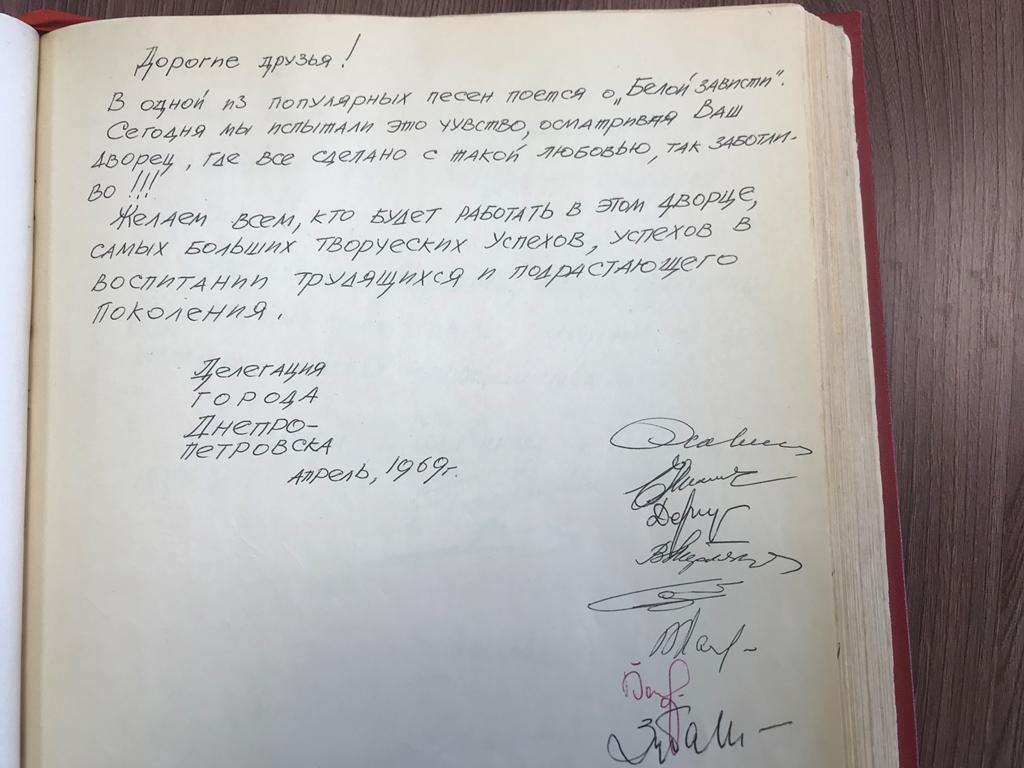 Дорогие друзья!
В одной из популярных песен поется о „Белой зависти".
Сегодня мы испытали это чувство, осматривая Ваш
дворец, где все сделано с такой любовью, так заботли-
во!!!
Желаем всем, кто будет работать в этом дворце,
самых больших творуеских успехов, успехов в
воспитании трудящихся и подрастающего
поколения.
Делегация
города
Днепро-
петровска
апрель, 1969г.